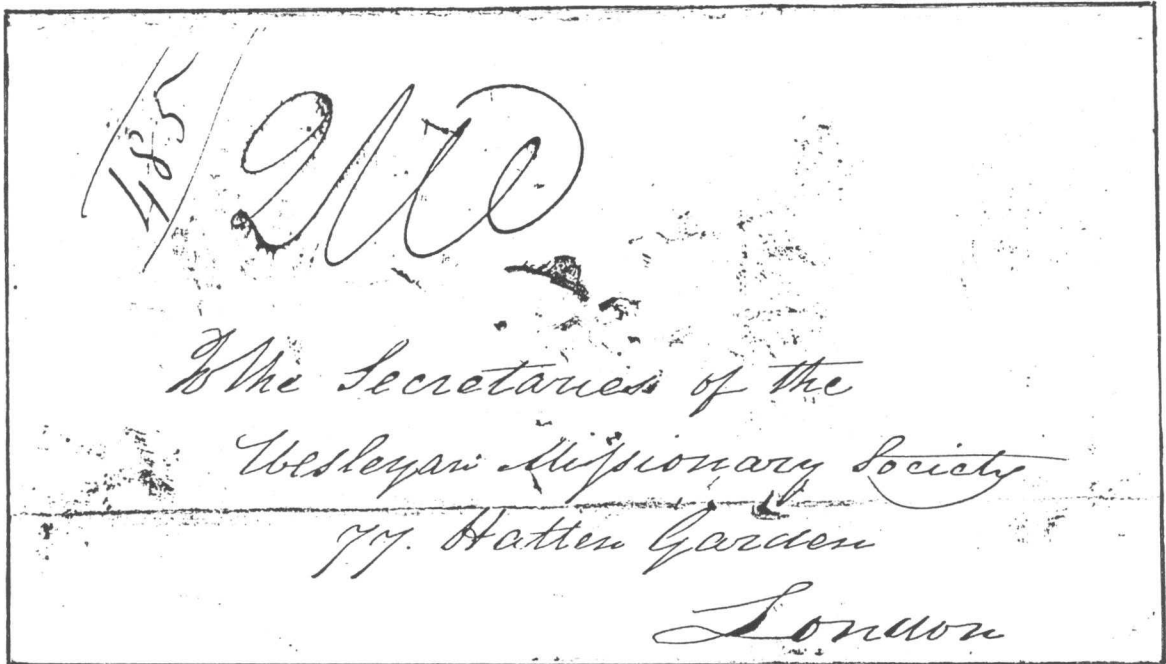 485
To the Secretaries of the
Wesleyan Missionary Society
77. Hatten Garden
London